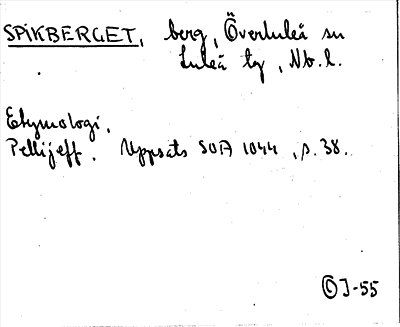 SPIKBERGET, berg, Överluleå sn
Luleå tg, Nb. l.
Etymologi.
Pellijeff. Uppsats SOA 1044, s. 38.
ÖJ-55